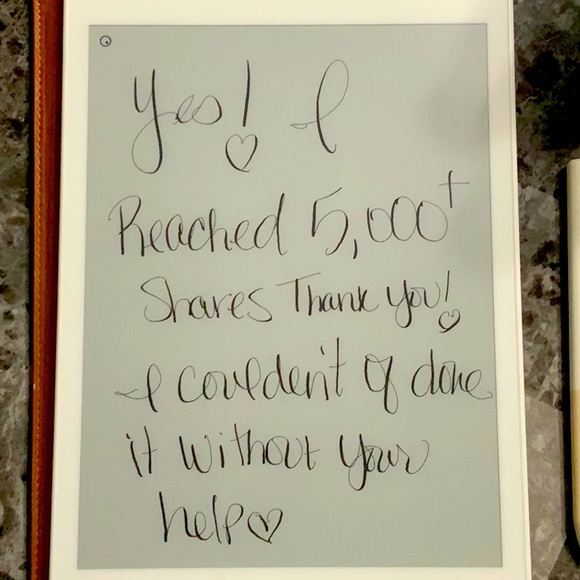 Yes! I
Reached 5,000+
Shares Thank you!
I couldent of done
it without your
help